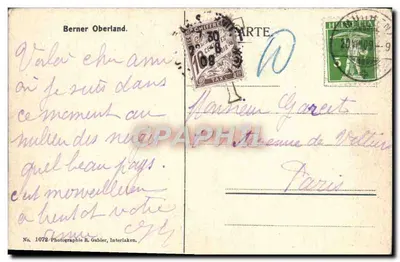 Berner Oberland.
CARTE.
Voilà cher ami
où je suis dans
ce moment au
milieu des neiges
quel beau pays.
c'est merveilleux
à bientôt votre
amie
Monsieur Garcet
Avenue de Villiers
Paris
No. 1072 Photographie R. Gabler, Interlaken.
5